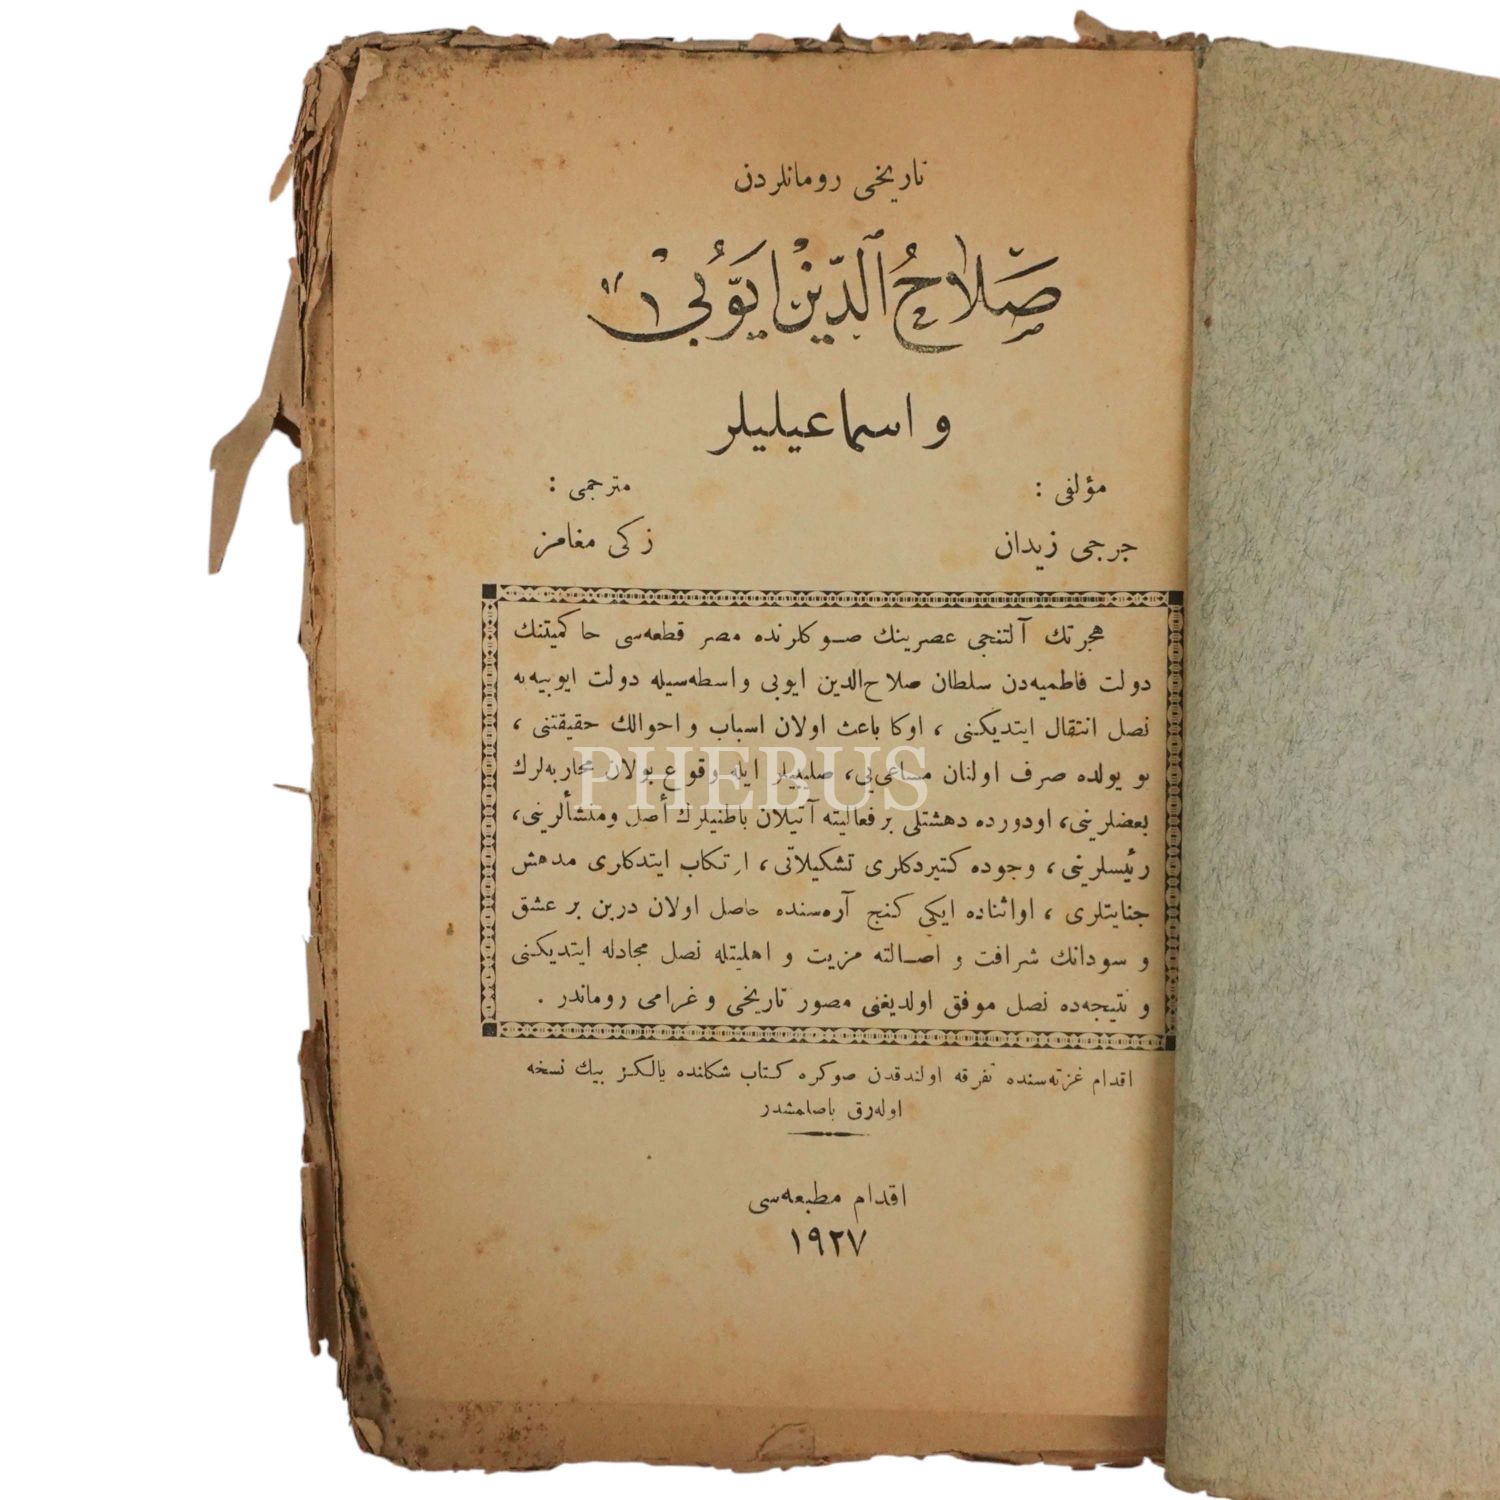 تاریخی رومانلردن
صَلَاحُ الدِّیْنِ اَیُّوبِیْ
و اسماعیلیلر
مؤلفی :
مترجمی :
جرجی زیدان
زکی مغامز
هجرتك آلتنجی عصرینك صوکلرنده مصر قطعه‌سی حاکمیتنك
دولت فاطمیه‌دن سلطان صلاح‌الدین ایوبی واسطه‌سیله دولت ایوبیه‌یه
نصل انتقال ایتدیکنی ، اوکا باعث اولان اسباب و احوالك حقیقتنی ،
بو یولده صرف اولنان مساعی‌یی، صلیبیلر ایله وقوع بولان محاربه‌لرك
بعضلرینی، اودورده دهشتلی بر فعالیته آتیلان باطنیلرك أصل ومنشألرینی،
رئیسلرینی ، وجوده کتیردکلری تشکیلاتی ، ارتکاب ایتدکاری مدهش
جنایتلری ، اواثناده ایکی کنج آره‌سنده حاصل اولان درین بر عشق
و سودانك شرافت و اصالته مزیت و اهلیتله نصل مجادله ایتدیکنی
و نتیجه‌ده نصل موفق اولدیغنی مصور تاریخی و غرامی روماندر .
اقدام غزته‌سنده تفرقه اولندقدن صوکره کتاب شکلنده یالکز بیك نسخه
اوله‌رق باصلمشدر
اقدام مطبعه‌سی
۱۹۲۷
PHEBUS